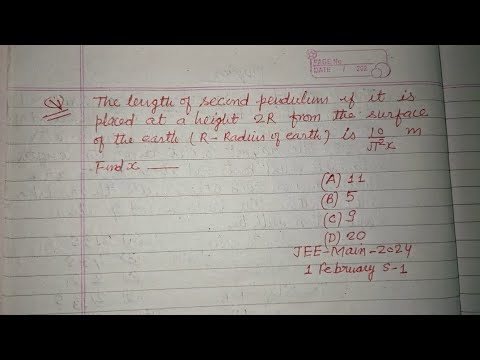 PAGE No.
DATE / 202
Q The length of second pendulum if it is
placed at a height 2R from the surface
of the earth (R- Radius of earth) is 10/π²x m
Find x —
(A) 11
(B) 5
(C) 9
(D) 20
JEE-Main-2024
1 February S-1